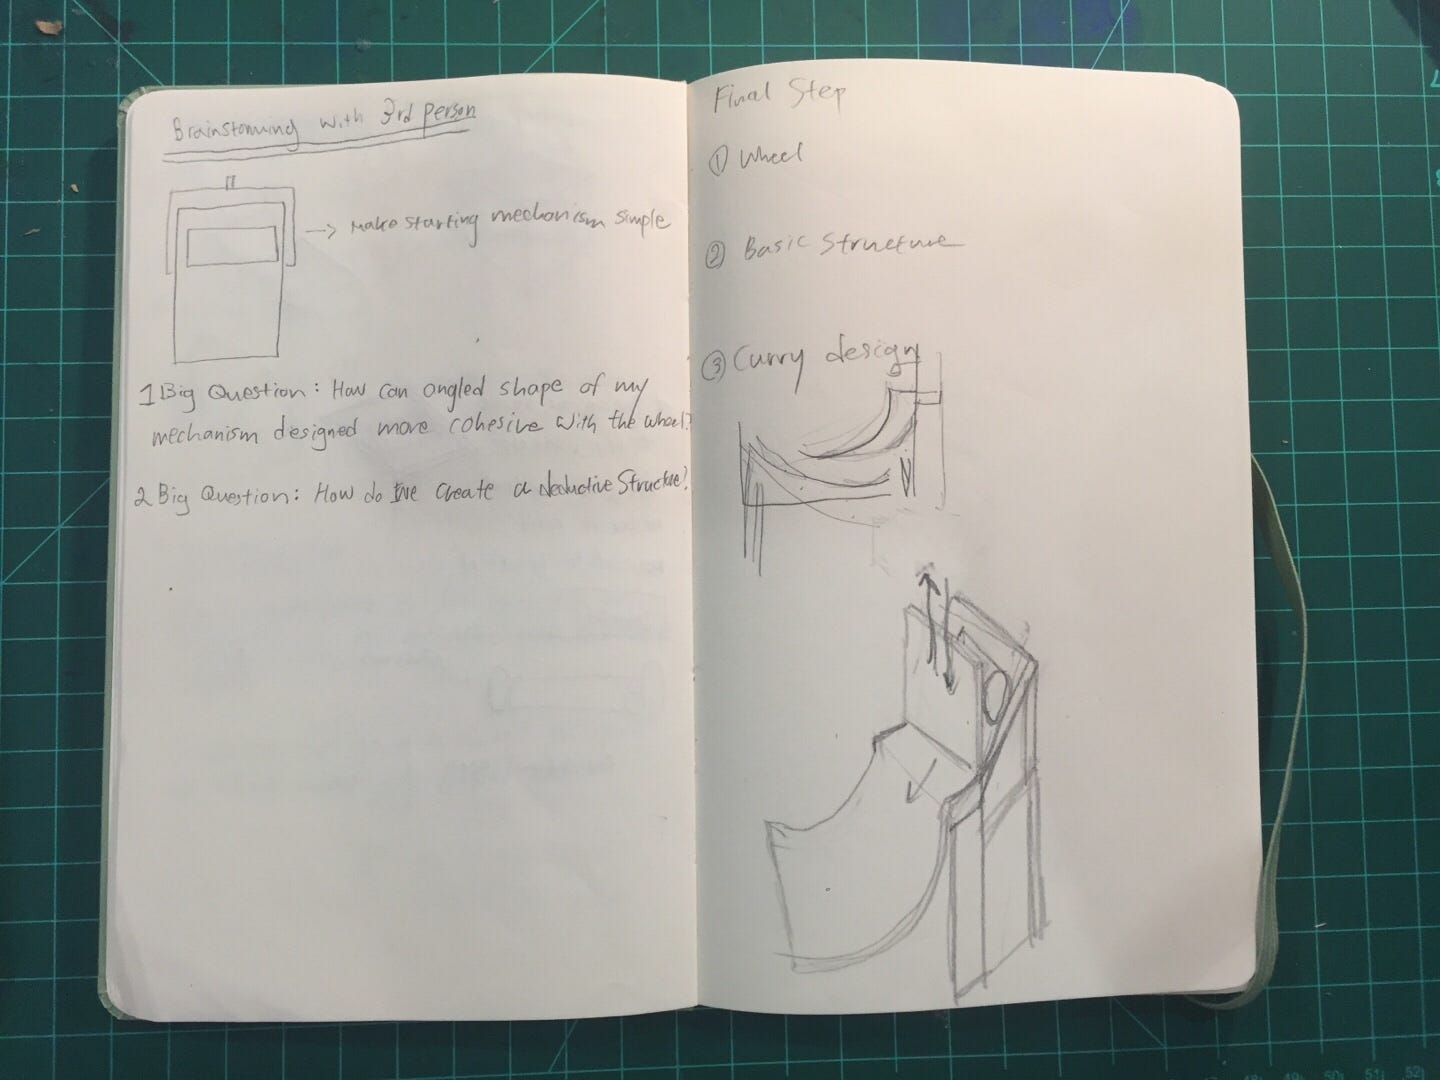 Brainstorming with 3rd person
→ Make starting mechanism simple
1 Big Question: How can angled shape of my
mechanism designed more cohesive with the wheel?
2 Big Question: How do I create a deductive Structure?
Final Step
① Wheel
② Basic Structure
③ Curvy design
51
52